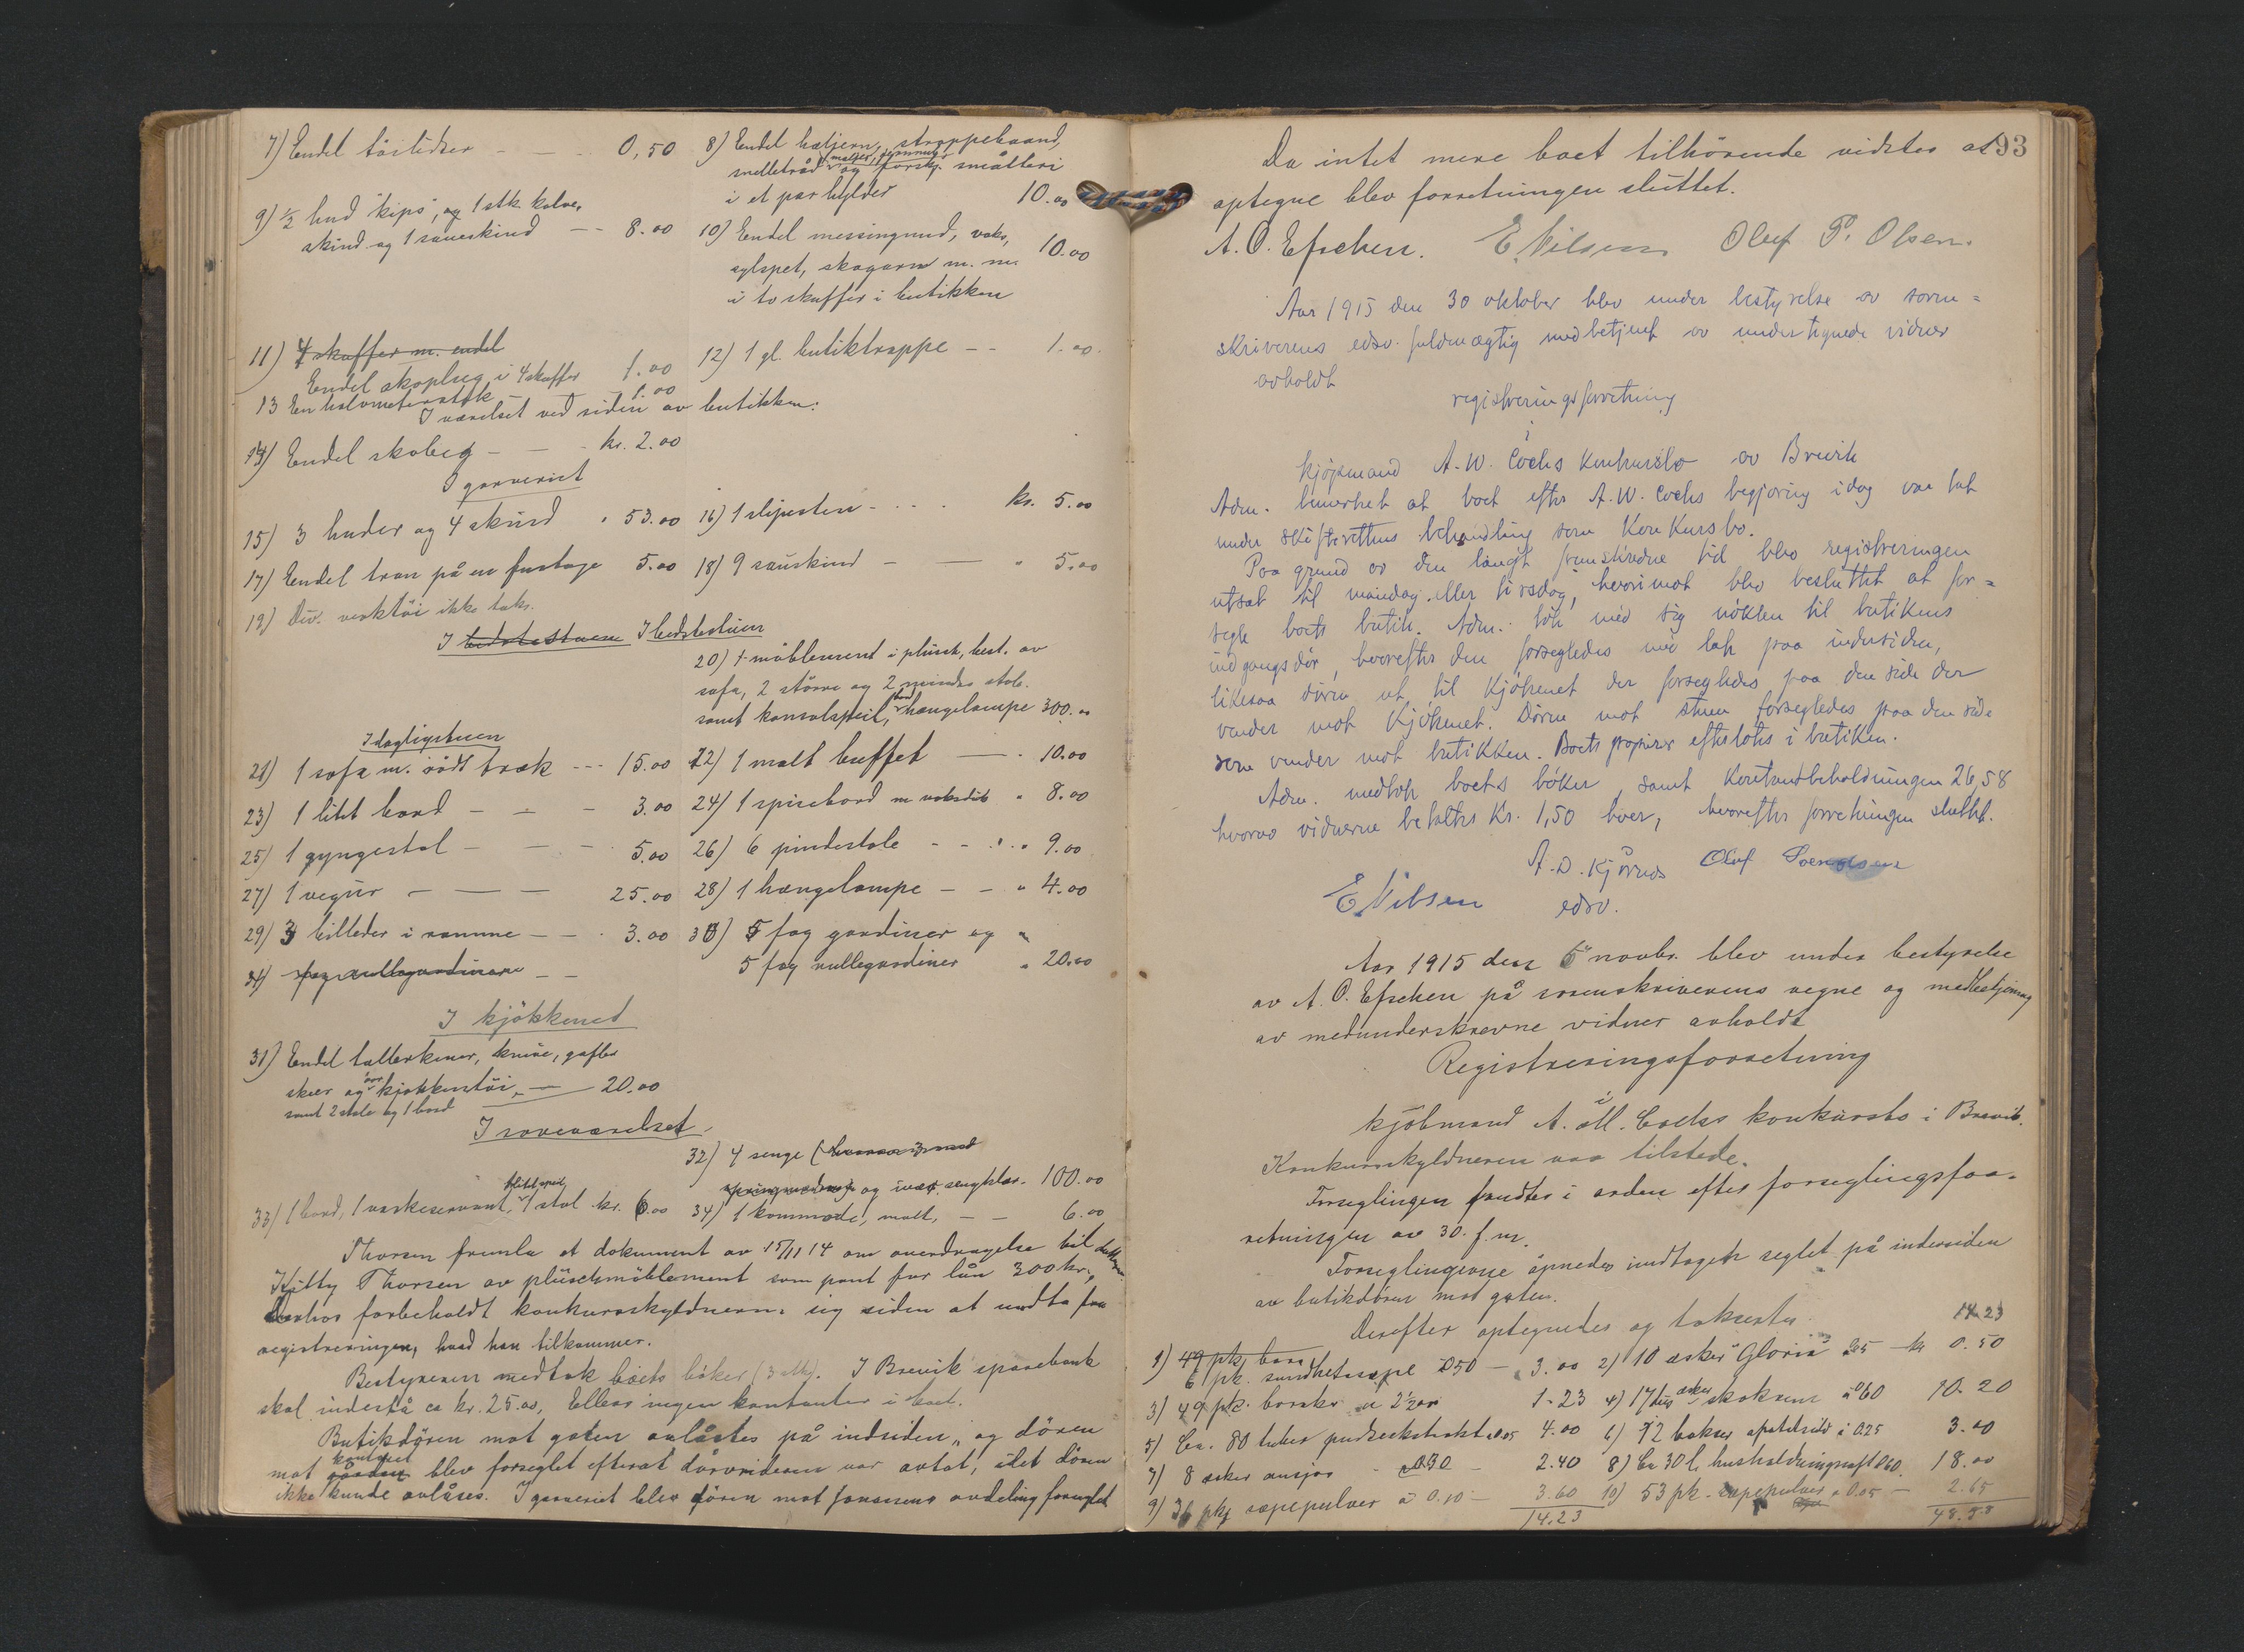 7) Endel tøilidser — — 0,50
8) Endel hæljern, stroppebaand,
maljer, gummier
smelletraad og forskj. småtteri
i et par hylder 10.00
9) ½ hud "kips", og 1 stk. kalve,
skind og 1 saueskind — - 8.00
10) Endel messingnud, voks,
sylspet, skogarn m. m.
i to skuffer i butikken 10.00
11) 4 skuffer m. endel
Endel skoplug i 4 skuffer 1.00
12) 1 gl. butiktrappe - - 1.00.
13 En halvmeterstok 1.00
I værelset ved siden av butikken:
14) Endel skobeg - — - kr. 2.00
I garveriet
15) 3 huder og 4 skind " 53.00
16) 1 slipesten - . . . kr. 5.00
17) Endel tran på en fustage 5.00
18) 9 saueskind - — " 5.00
19) Div. verktöi ikke takst.
I bedstestuen I bedstestuen
20) 1 möblement i plüsch, best. av
sofa, 2 större og 2 mindre stole.
samt konsolspeil, bord hængelampe 300.00
I dagligstuen
21) 1 sofa m. rödt træk - - - 15.00
22) 1 malt buffet — - 10.00
23) 1 litet bord - - - 3.00
24) 1 spisebord m voksduk " 8.00
25) 1 gyngestol - - - 5.00
26) 6 pindestole - - . " 9.00
27) 1 vegur - — — 25.00
28) 1 hængelampe - - " 4.00
29) 3 billeder i ramme - - . 3.00
30) 5 fag gardiner og "
5 fag rullegardiner " 20.00
31) fag rullegardinere - -
I kjökkenet
31) Endel tallerkener, knive, gafler
skeer og kjøkkentöi, — 20.00
samt 2 stole og 1 bord
I soveværelset
32) 4 senge (hvorav 3 med
springmadras) og iver. sengklær. 100.00
33) 1 bord, 1 vaskeservant, 1 litet speil, 1 stol kr. 6.00
34) 1 kommode, malt, - - 6.00
Thorsen fremla et dokument av 15/11 14 om overdragelse til datteren
Kitty Thorsen av plüschmöblement som pant for lån 300 kr.,
derhos forbeholdt konkursskyldneren sig siden at undta fra
registreringen, hvad han tilkommer.
Bestyreren medtok boets böker (3 stk). I Brevik sparebank
skal indestå ca kr. 25.00, Ellers ingen kontanter i boet.
Butikdören mot gaten avlåstes på indsiden, og dören
mot kontoret gården blev forseglet efterat dörvrideren var avtat, idet dören
ikke kunde avlåses. I garveriet blev dören mot Jansens avdeling forseglet
93
Da intet mere boet tilhörende vidstes at
optegne blev forretningen sluttet.
A. O. Efschen. E Nilsen Oluf P. Olsen.
Aar 1915 den 30 oktober blev under bestyrelse av soren=
skriverens edsv. fuldmægtig med betjent av undertegnede vidner
avholdt
registreringsforretning
i
kjøpmand A. W. Cochs konkursbo av Brevik
Adm. bemerket at boet efter A. W. Cochs begjæring idag var tat
under skifterettens behandling som konkursbo.
Paa grund av den langt fremskredne tid blev registreringen
utsat til mandag eller tirsdag, hvorimot blev besluttet at for=
segle boets butik. Adm. tok med sig nøklen til butikens
indgangsdør, hvorefter den forsegledes med lak paa indersiden,
likesaa døren ut til kjøkenet der forsegledes paa den side der
vender mot kjøkenet. Døren mot stuen forsegledes paa den side
som vender mot butikken. Boets papirer efterlotes i butiken.
Adm. medtok boets bøker samt kontantbeholdningen 26,58
hvorav vidnerne betaltes kr. 1,50 hver, hvorefter forretningen sluttet.
E Nilsen A. D. Kjørrds Oluf Svendsen
edsv.
Aar 1915 den 5 novbr. blev under bestyrelse
av A. O. Efschen på sorenskriverens vegne og medbetjening
av medunderskrevne vidner avholdt
Registreringsforretning
i
kjöbmand A. W. Cochs konkursbo i Brevik.
Konkursskyldneren var tilstede.
Forseglingen fandtes i orden efter forseglingsfor-
retningen av 30. f. m.
Forseglingerne åpnedes undtagen seglet på indersiden
av butikdören mot gaten.
Derefter optegnedes og taksertes 14.23
1) 49 pk, bora
6 pk. sundhetssæpe a 0.50 — 3.00
2) 10 æsker "Gloria" a 0.05 — kr 0.50
3) 49 pk. boraks a 2½ øre 1.23
4) 17 dus. æsker skokrem à 0.60 10.20
5) Ca. 80 tuber pudseekstrakt a 0.05 4.00
6) 12 bokser apetitsild à 0.25 3.00
7) 8 æsker ansjos - a 0.30 - 2.40
8) Ca 30 l. husholdningssaft 0.60. 18.00
9) 36 pk sæpepulver à 0.10 - 3.60
10) 53 pk. sæpepulver a 0.05 - 2.65
14.23
48.58